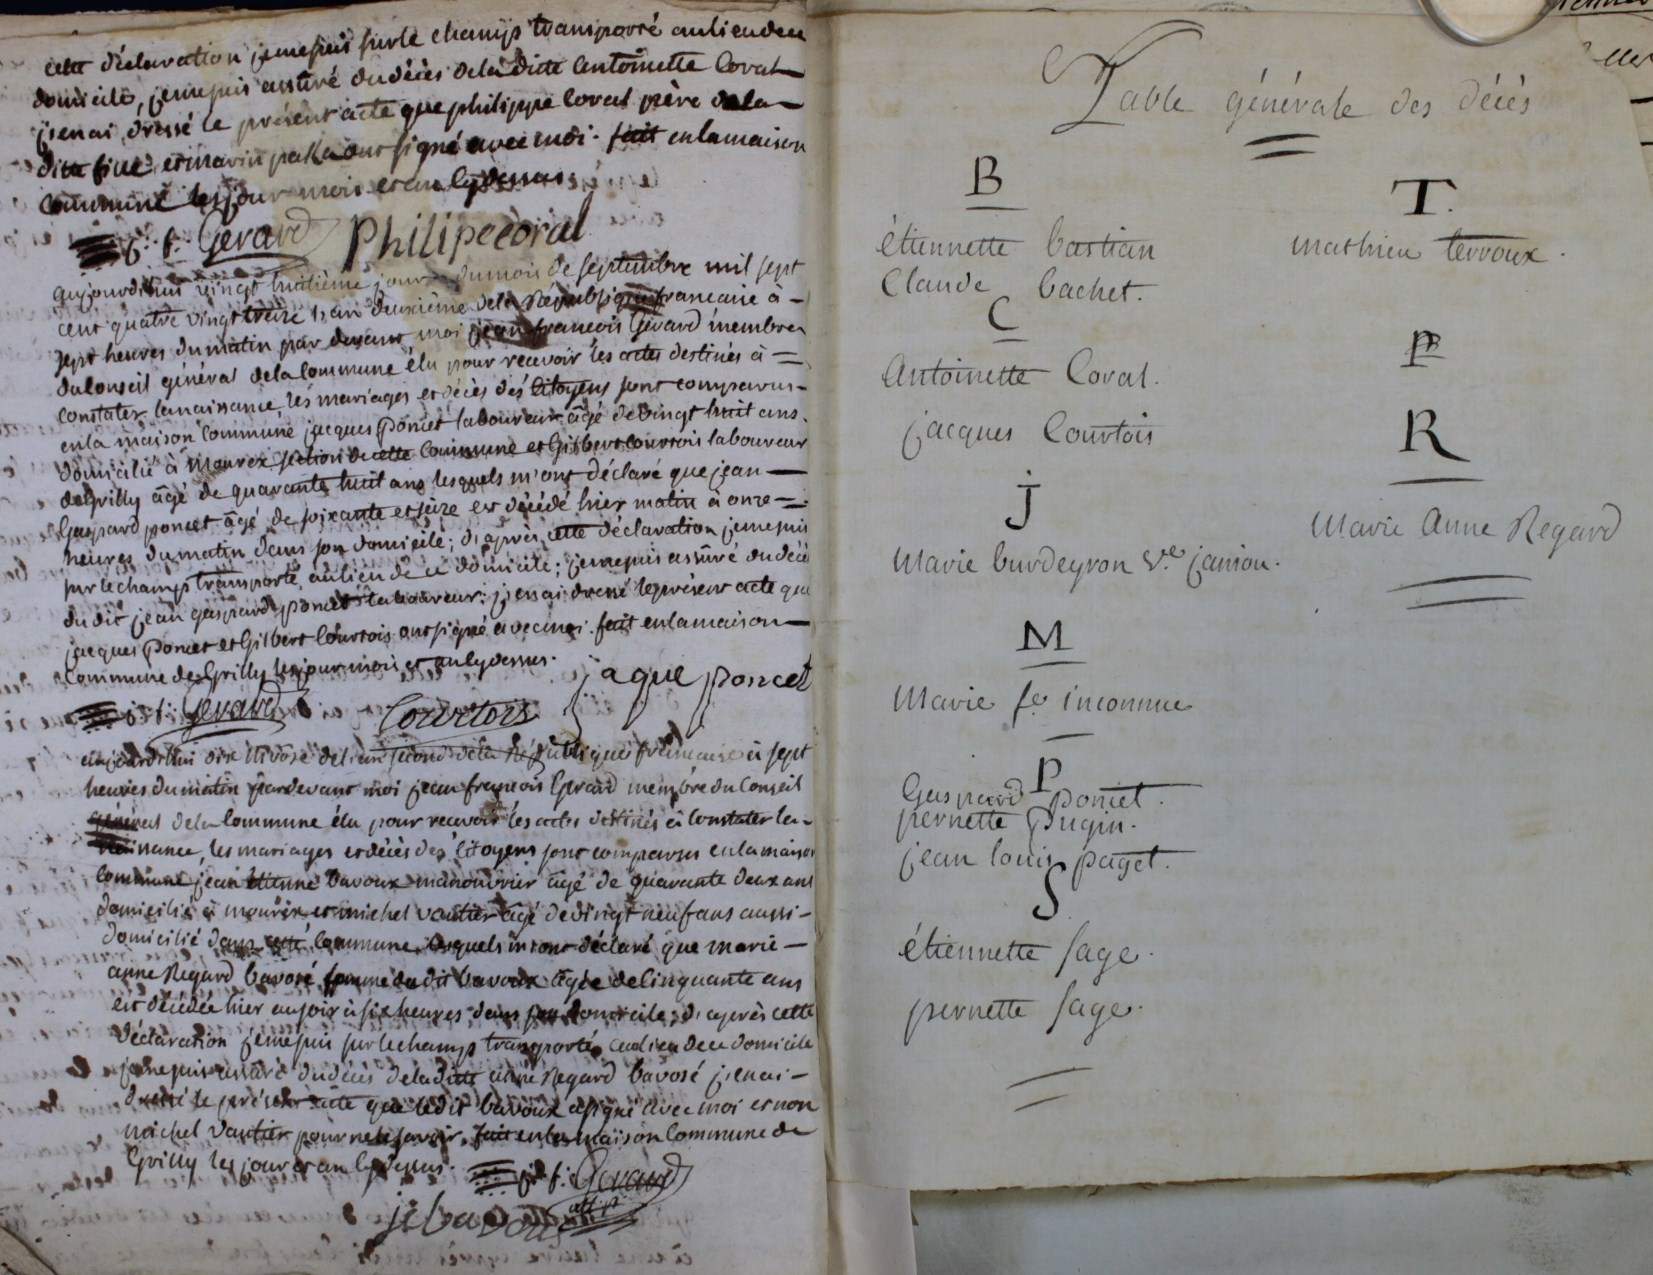 cette déclaration je me suis sur le champs transporté au lieu de ce
domicile, je me suis assuré du décès de la ditte antoinette Coral
j'en ai dressé le présent acte que philippe Coral père de la
ditte fille et marin ont signé avec moi. fait en la maison
commune les jour mois et an cy dessus
j: f: Gerard Philipe coral
aujourd'hui vingt huitième jour du mois de septembre mil sept
cent quatre vingt treize l'an deuxième de la République francaise à
sept heures du matin par devant moi jean francois Gerard membre
du Conseil général de la Commune élu pour recevoir les actes destinés à
constater la naissance, les mariages et décès des Citoyens sont comparus
en la maison commune jacques poncet laboureur âgé de vingt huit ans
domicilié à Mourex section de cette Commune et Gilbert Courtois laboureur
de Grilly âgé de quarante huit ans lesquels m'ont déclaré que jean
Gaspard poncet âgé de soixante et seize est décédé hier matin à onze
heures du matin dans son domicile; d'après cette déclaration je me suis
sur le champs transporté au lieu de ce domicile; je me suis assuré du décès
du dit jean gaspard poncet laboureur; j'en ai dressé le présent acte que
jacques Poncet et Gilbert Courtois ont signé avec moi. fait en la maison
Commune de Grilly les jour mois et an cy dessus.
jaque poncet
j: f: Gerard Courtois
aujourd'hui dix Nivose de l'an second de la République francaise à sept
heures du matin pardevant moi jean francois Gerard membre du Conseil
général de la Commune élu pour recevoir les actes destinés à Constater la
naissance, les mariages et décès des Citoyens sont comparus en la maison
Commune jean étienne bavoux manouvrier âgé de quarante deux ans
domicilié à mourex et michel vautier âgé de vingt neuf ans aussi
domicilié dans cette Commune lesquels m'ont déclaré que marie
anne Regard bavosé femme du dit bavoux âgée de Cinquante ans
est décédée hier au soir à six heures dans son domicile; d'après cette
déclaration je me suis sur le champs transporté au lieu de ce domicile
je me suis assuré du décès de la ditte anne Regard bavosé j'en ai
dressé le présent acte que le dit bavoux a signé avec moi et non
michel vautier pour ne le savoir. fait en la maison Commune de
Grilly les jour et an cy dessus.
j: f: Gerard
Table générale des décès
B
étiennette bastian
Claude bachet.
C
Antoinette Coral.
jacques Courtois
J
Marie burdeyron Ve janion.
M
Marie fe inconnue
P
Gaspard poncet.
pernette Pugin.
jean louis paget.
S
étiennette sage.
pernette sage.
T.
mathieu terroux.
R
Marie Anne Regard